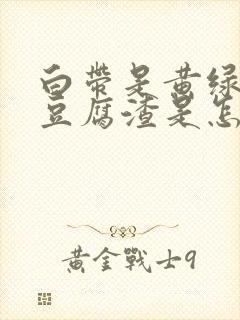 白带是黄绿
豆腐渣是怎
黃金戰士9